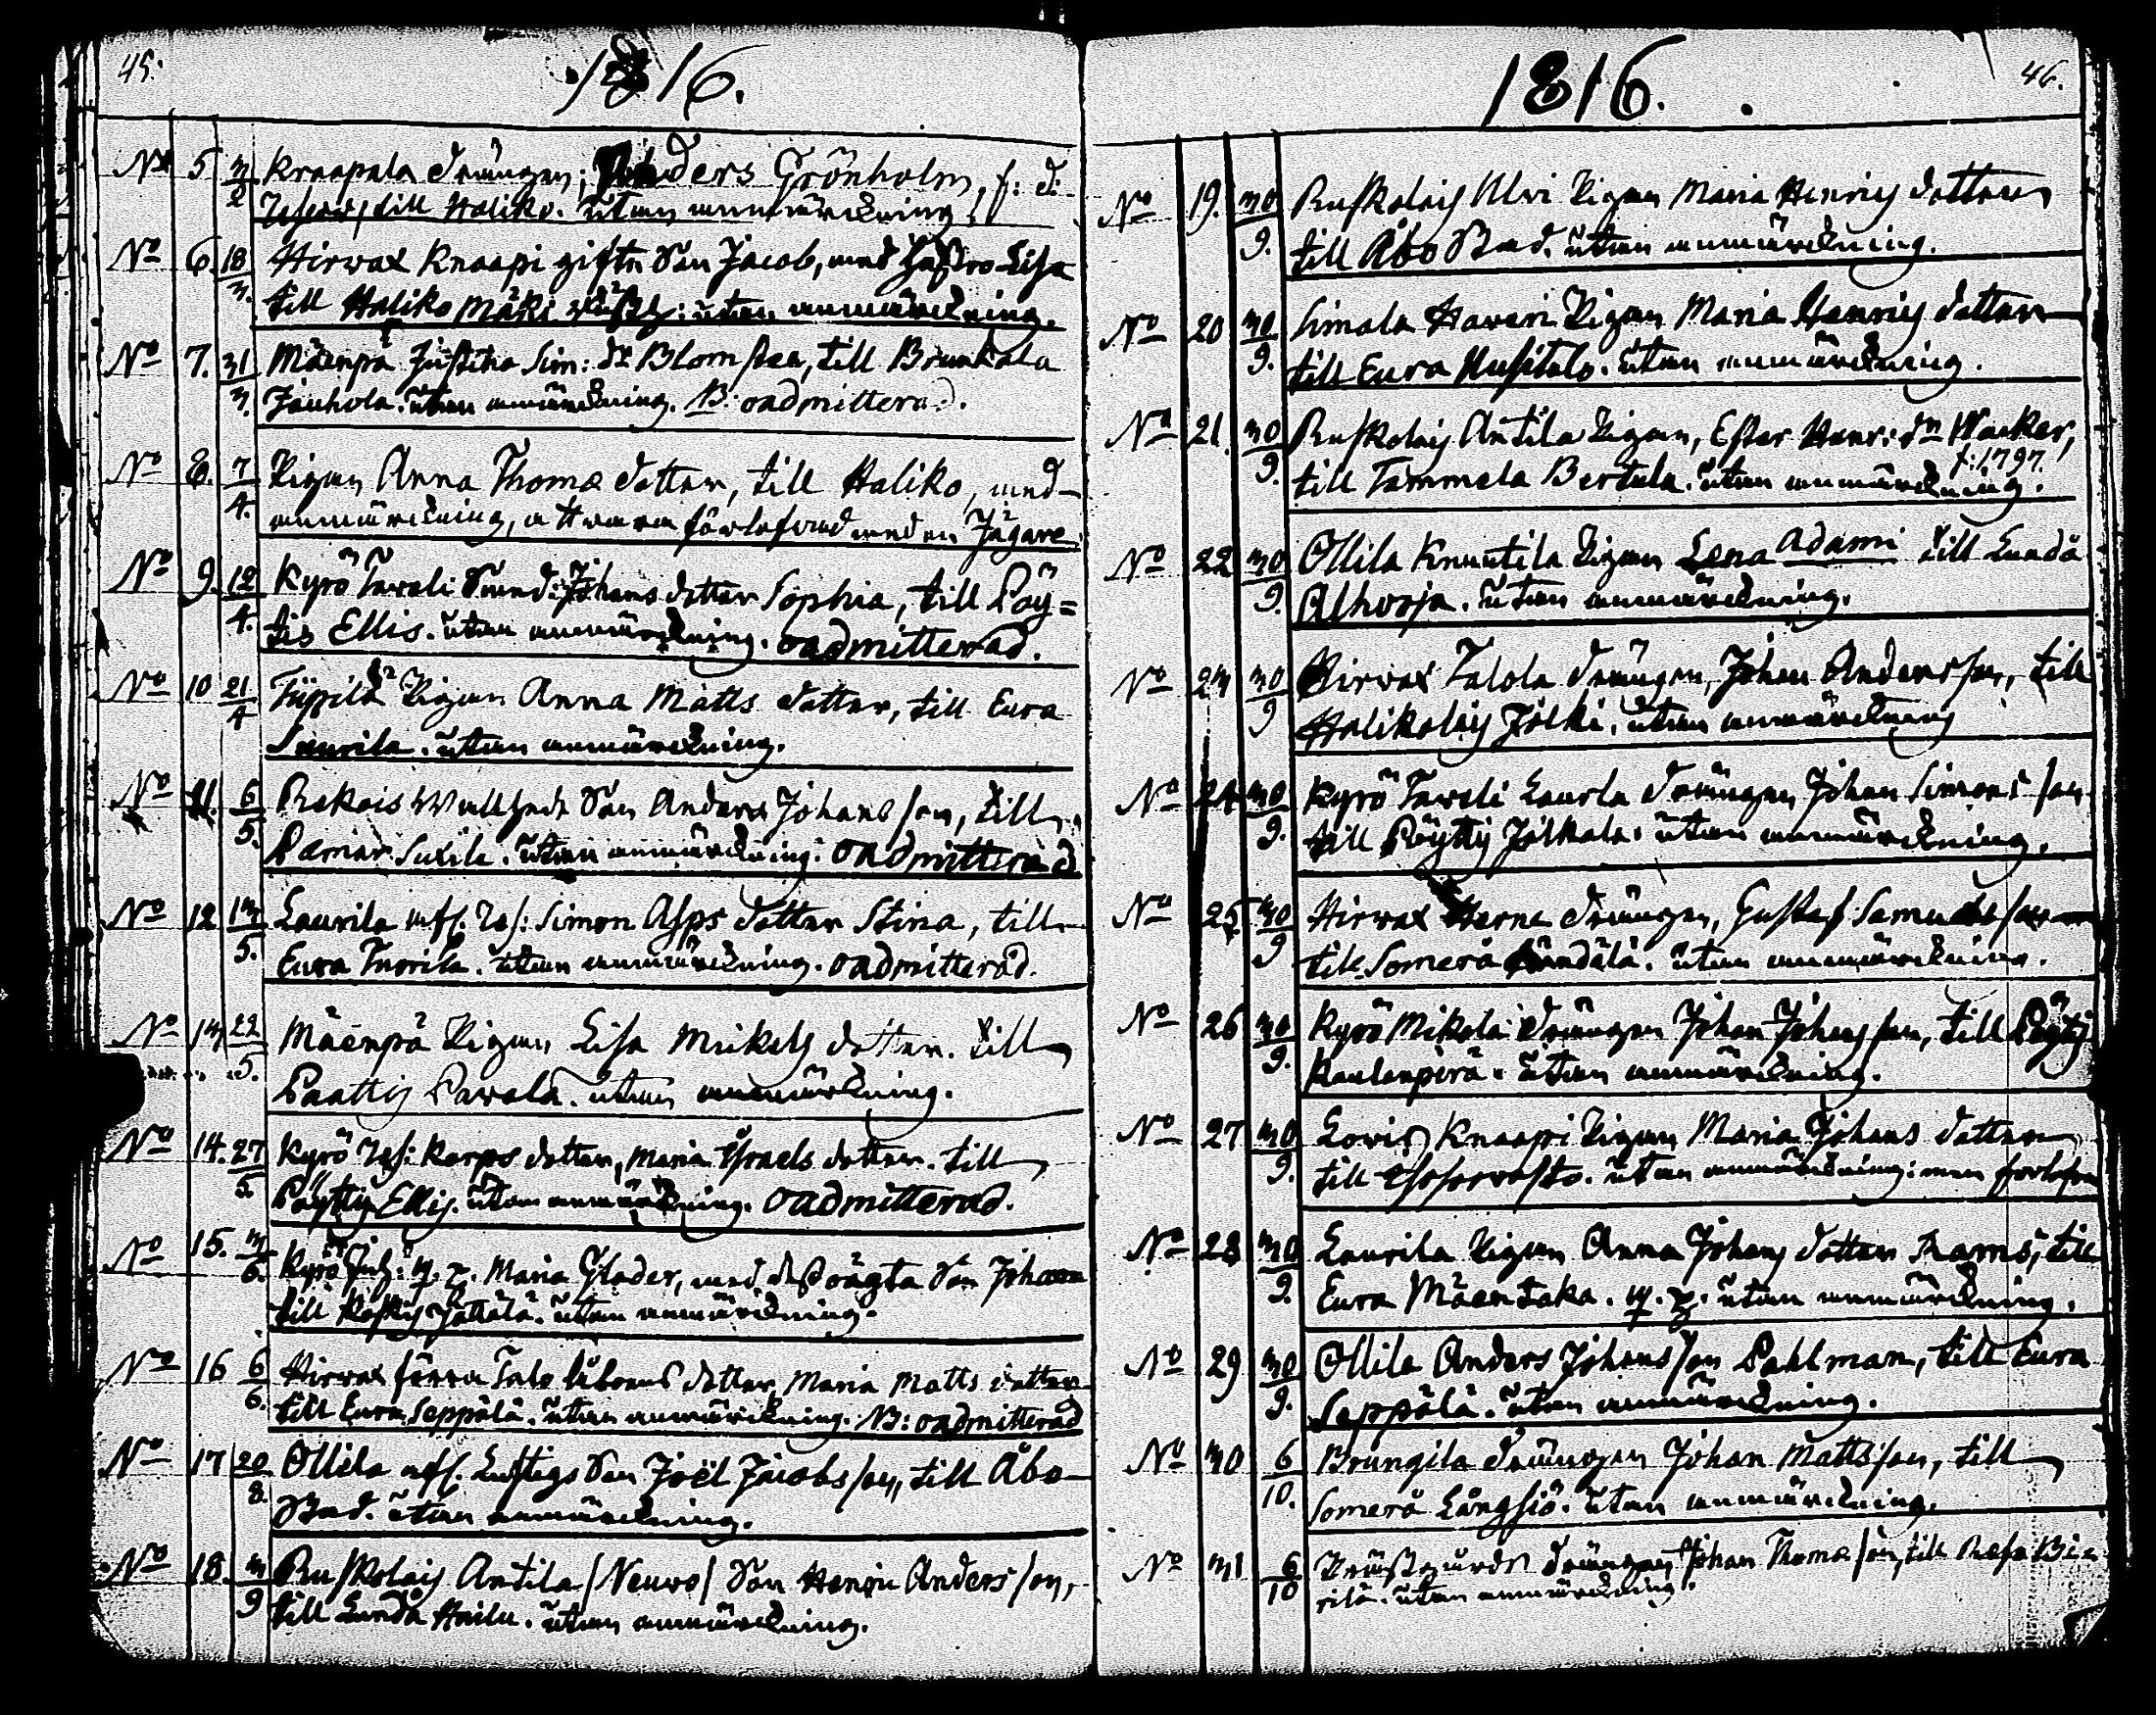 45.
1816.
No 5 3/2 Kraapala Drängen, Anders Grönholm, f: d:
till Haliko. utan anmärckning
No 6. 18/3. Hirwax Knaapi gifta Son Jacob, med Hustro Lisa
till Haliko Mäki utan anmärckning.
No 7. 31/3. Mäenpä Justina Sim: dr Blom till Brunkala
Jauhola. utan anmärckning. B: oadmitterad.
No 8. 7/4. Pigan Anna Thomæ dotter, till Haliko, med
anmärckning, att wara förlofwad med en Jägare
No 9. 12/4. Kyrö Taweli Johans dotter Sophia, till Pöy=
tis Ellis. utan anmärckning. oadmitterad.
No 10 21/4 Pigan Anna Matts dotter, till Eura
Laurila. utan anmärckning.
No 11. 6/5. Rekois Son Anders Johansson, till
Pamar utan anmärckning. oadmitterad
No 12 13/5. Laurila Simon Asps dotter Stina, till
Eura utan anmärckning. oadmitterad.
No 13 22/5. Mäenpä Pigan Lisa Mickels dotter. till
Paattis Pawola. utan anmärckning.
No 14. 27/5. Kyrö Karps dotter, Maria Israels dotter. till
Pöyttis Ellis. utan anmärckning. oadmitterad.
No 15. 3/6. Kyrö Maria Glader, med dess oägta Son Johan
till Koskis utan anmärckning.
No 16 6/6. Hirwax förra Talo dotter Maria Matts dotter
till Eura Seppälä. utan anmärckning. B: oadmitterad
No 17 20/8. Ollila Son Joël Jacobsson, till Åbo
Stad. utan anmärckning.
No 18. 3/9 Ruskolais Antila /Neuwo/ Son Henric Andersson,
till Lundå utan anmärckning.
46.
1816.
No 19. 30/9. Ruskolais Ulvi Pigan Maria Henrics dotter
till Åbo Stad. utan anmärckning.
No 20 30/9. Simala Haveri Pigan Maria Henrics dotter
till Eura Uusitalo. utan anmärckning.
No 21. 30/9. Ruskolais Antila Pigan, Ester Henr: dr Wacker,
f: 1797.
till Tammela Bertula. utan anmärckning.
No 22 30/9. Ollila Knuutila Pigan Lena Adami till Lundå
Alhoja. utan anmärckning.
No 23 30/9 Hirvax Talola Drängen, Johan Andersson, till
Halikolais Jälki. utan anmärckning
No 24 30/9. Kyrö Taweli Laurla Drängen Johan Simonsson
till Pöyttis Jälkala. utan anmärckning.
No 25 30/9 Hirvax Herne Drängen, Gustaf Samuelsson
till Somero utan anmärckning.
No 26 30/9. Kyrö Mikola Drängen Johan Johansson, till Pöytis
Kaulanperä. utan anmärckning.
No 27 30/9. Knaapi Pigan Maria Johans dotter
till utan anmärckning: men
No 28 30/9. Laurila Pigan Anna Johans dotter till
Eura Mäentaka. utan anmärckning.
No 29 30/9. Ollila Anders Johansson Pahlman, till Eura
Seppälä. utan anmärckning.
No 30 6/10. Brungila Drängen Johan Mattsson, till
Somero Långsjö. utan anmärckning.
No 31 6/10 Drängen Johan Thomæson, till
rilä. utan anmärckning.